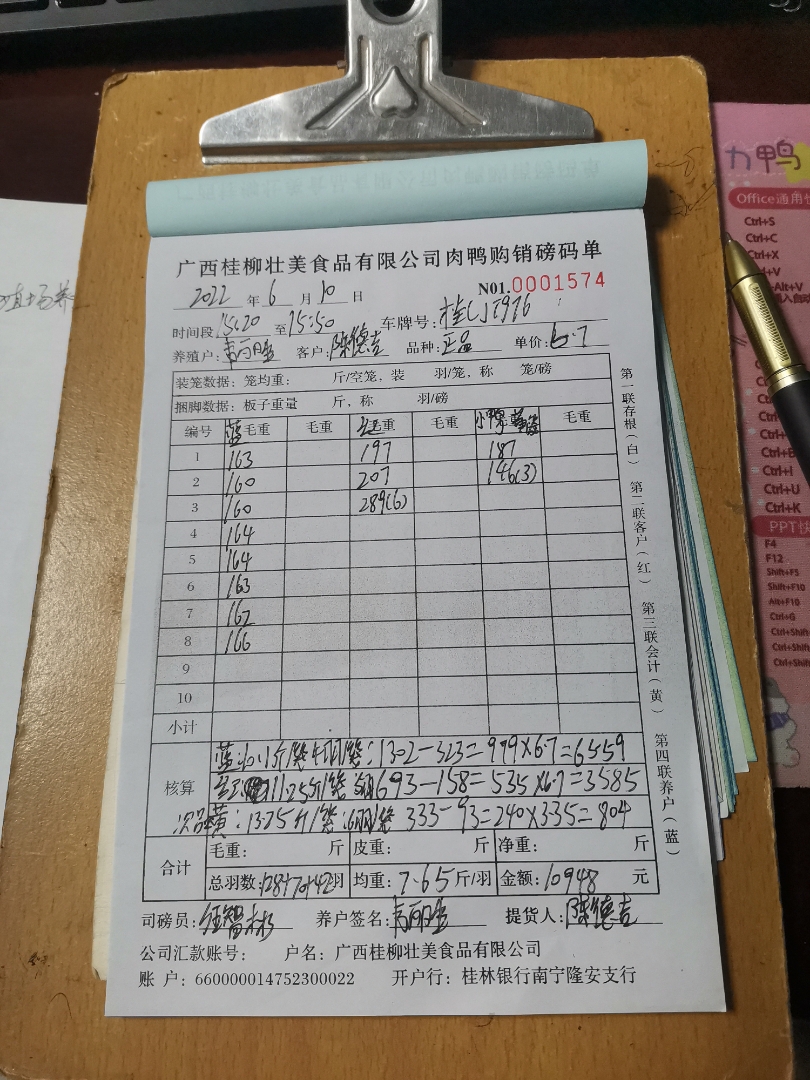 广西桂柳壮美食品有限公司肉鸭购销磅码单
N01.0001574
2022 年 6 月 10 日
时间段 15:20 至 15:50 车牌号:桂
养殖户: 客户:陈德吉 品种:正品 单价:6.7
装笼数据: 笼均重: 斤/空笼, 装 羽/笼, 称 笼/磅
捆脚数据: 板子重量 斤, 称 羽/磅
编号 蓝 毛重 毛重 红 毛重 毛重 小鸭 毛重
1 163 197 187
2 160 207 146(3)
3 160 289(6)
4 164
5 164
6 163
7 162
8 166
9
10
小计
核算
蓝: 1302-323=979×6.7=6559
红 11.25斤/袋 693-158=535×6.7=3585
次品黄:13.25斤/袋:6羽/袋 333-93=240×3.35=804
合计
毛重: 斤 皮重: 斤 净重: 斤
总羽数:128+70+42羽 均重:7.65斤/羽 金额:10948 元
司磅员: 养户签名: 提货人:陈德吉
公司汇款账号: 户名: 广西桂柳壮美食品有限公司
账 户: 660000014752300022 开户行: 桂林银行南宁隆安支行
第一联存根(白) 第二联客户(红) 第三联会计(黄) 第四联养户(蓝)
力鸭
Office通用
Ctrl+S
Ctrl+C
Ctrl+X
+V
+Alt+V
Ctrl+I
Ctrl+U
Ctrl+K
PPT快
F4
F12
Shift+F5
Shift+F10
Alt+F10
Ctrl+G
Ctrl+Shift
Ctrl+Shift
Ctrl+Shift